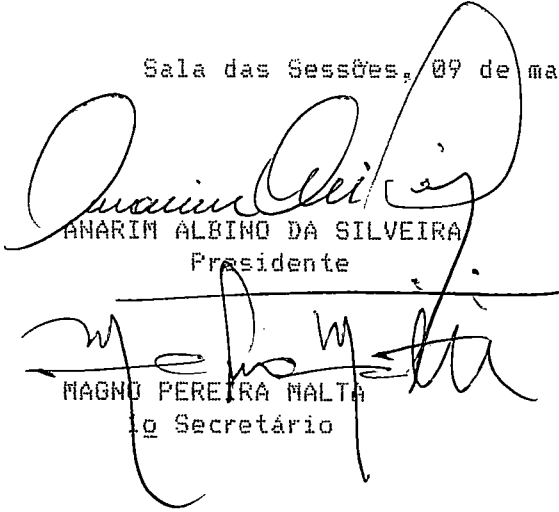 Sala das Sessões, 09 de ma
ANARIM ALBINO DA SILVEIRA
Presidente
Magno Malta
MAGNO PEREIRA MALTA
1º Secretário